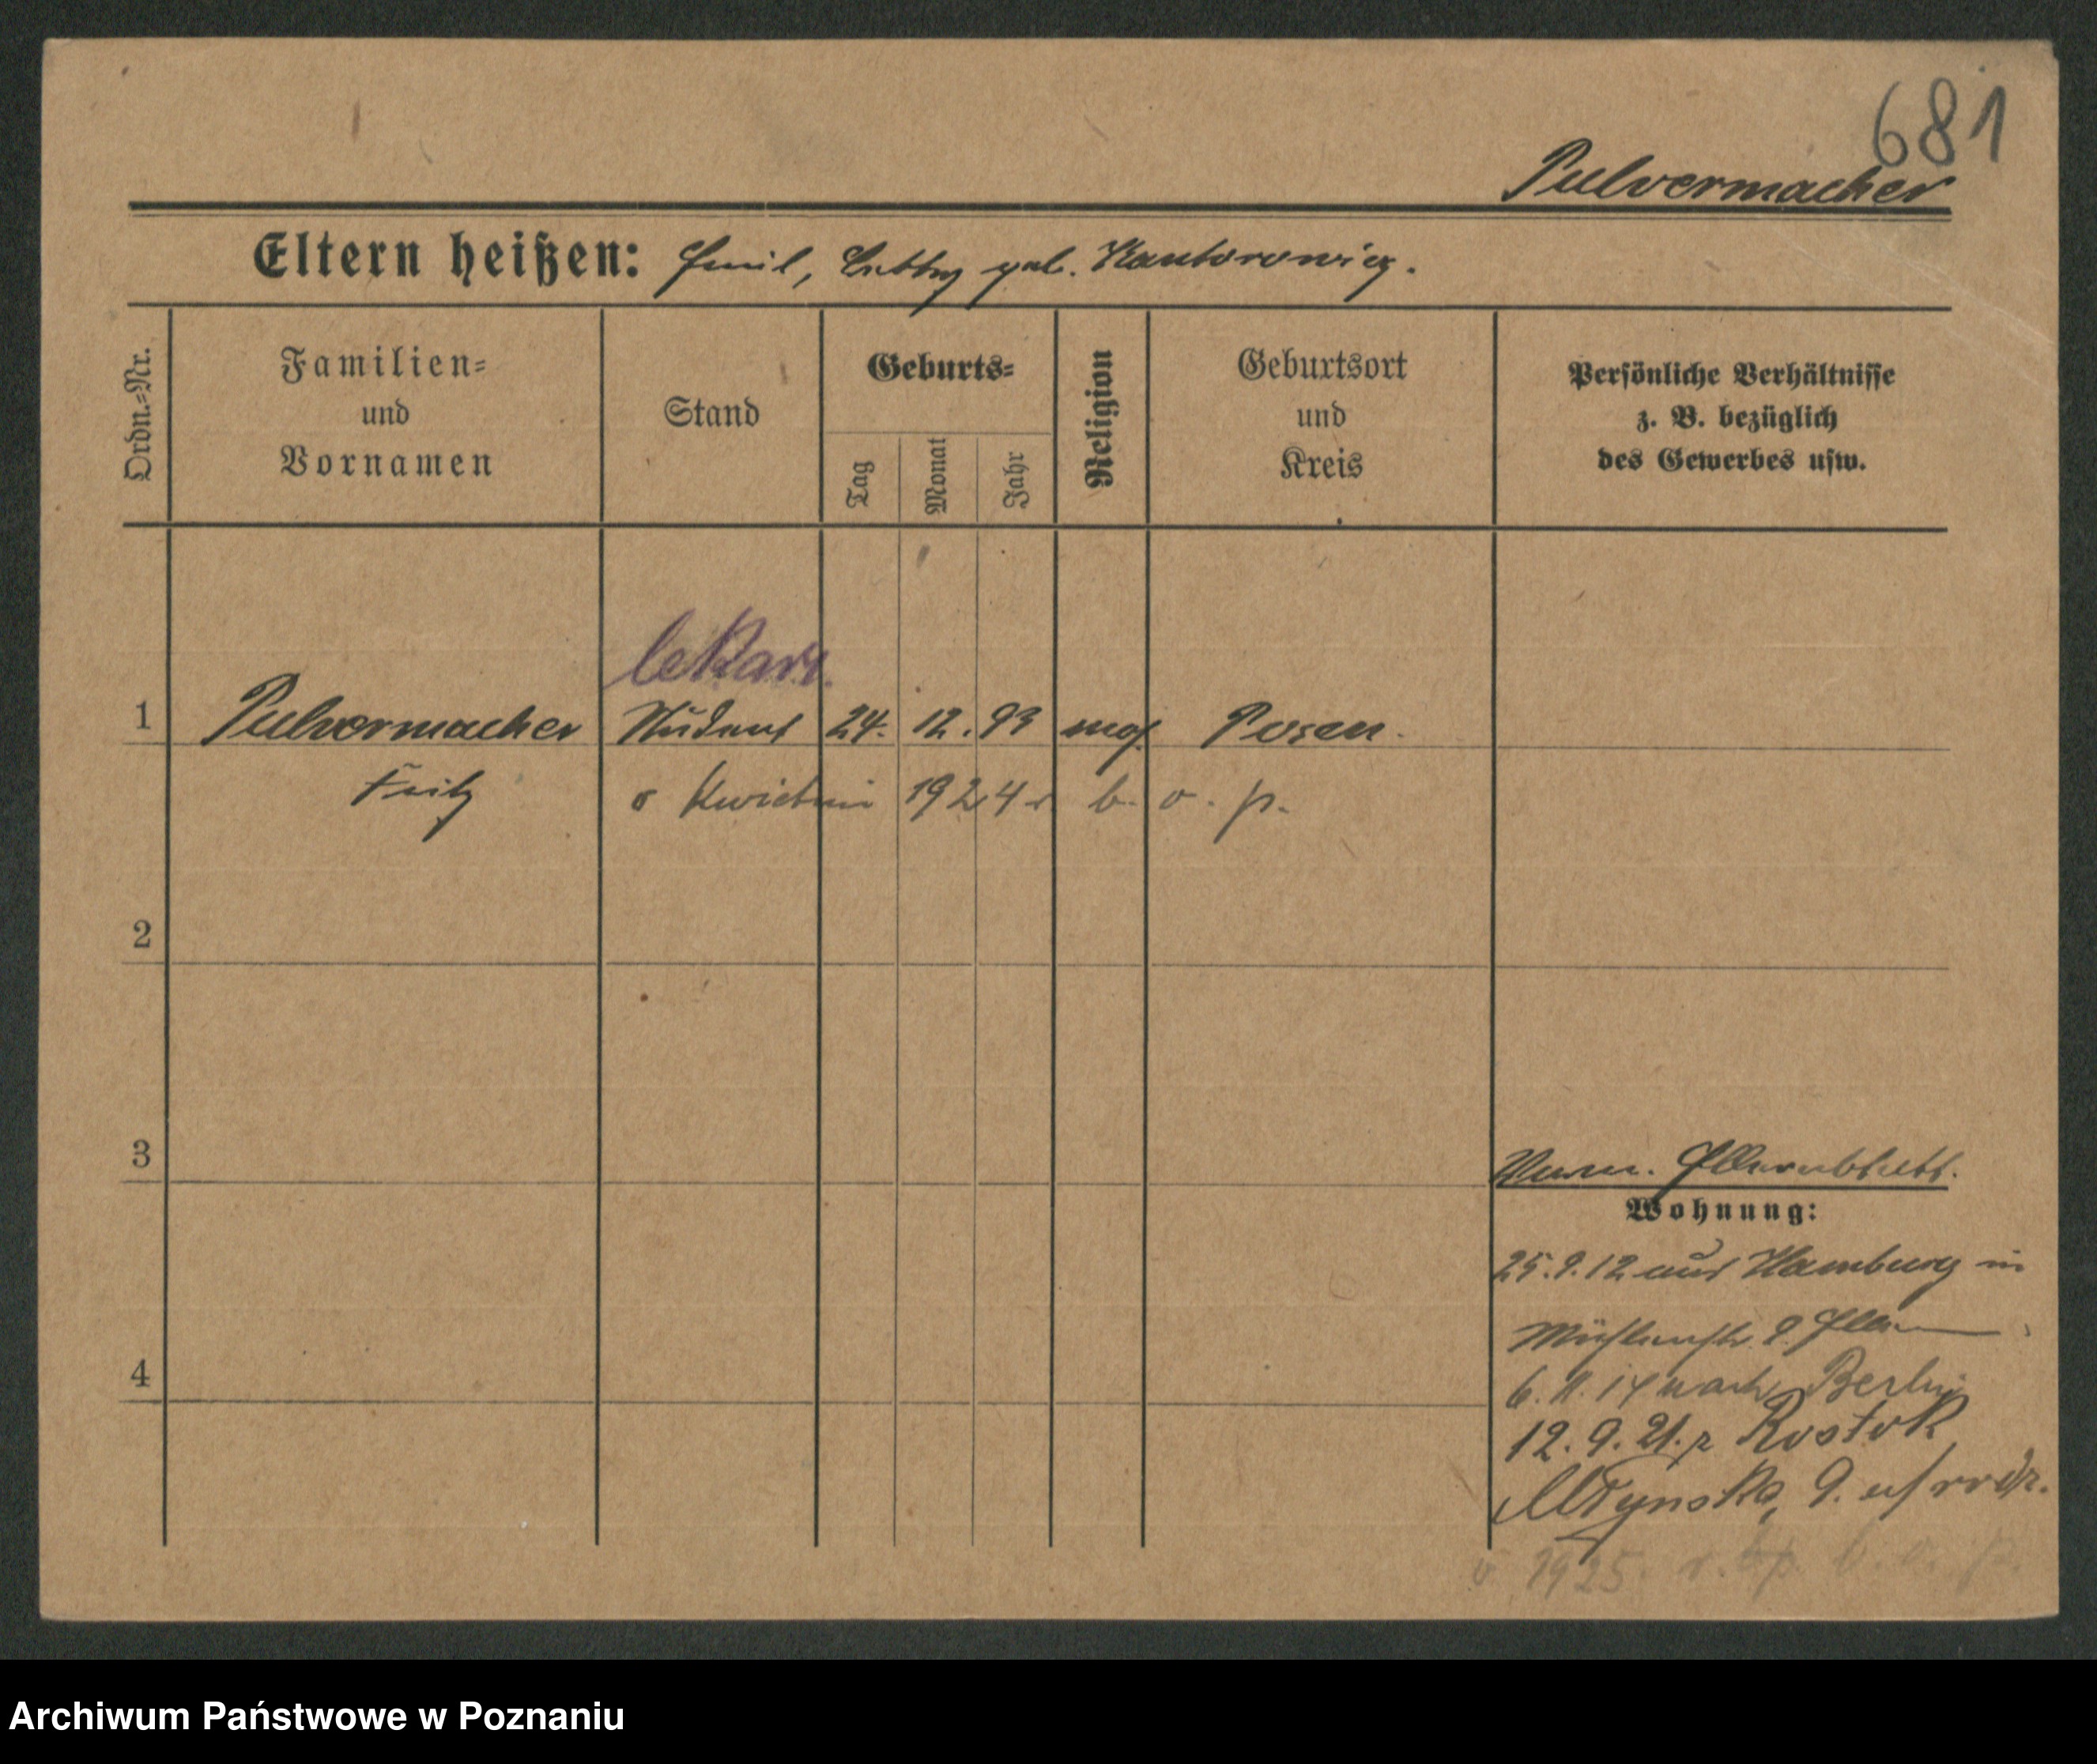 681
Pulvermacher
Eltern heißen: Emil, geb. Kantorowicz.
Ordn.=Nr.
Familien=
und
Vornamen
Stand
Geburts=
Tag
Monat
Jahr
Religion
Geburtsort
und
Kreis
Persönliche Verhältnisse
z. B. bezüglich
des Gewerbes usw.
lekarz.
1 Pulvermacher Student 24. 12. 93 mos. Posen.
Fritz
w kwietniu 1924 r b. o. p.
2
3
Elternblatt.
Wohnung:
25.9.12 aus Hamburg in
Mühlenstr. 9. Eltern
4
6. 11. 14 nach Berlin
12. 9. 21. z Rostok
Młyńska, 9.
1925. b. o. p.
Archiwum Państwowe w Poznaniu